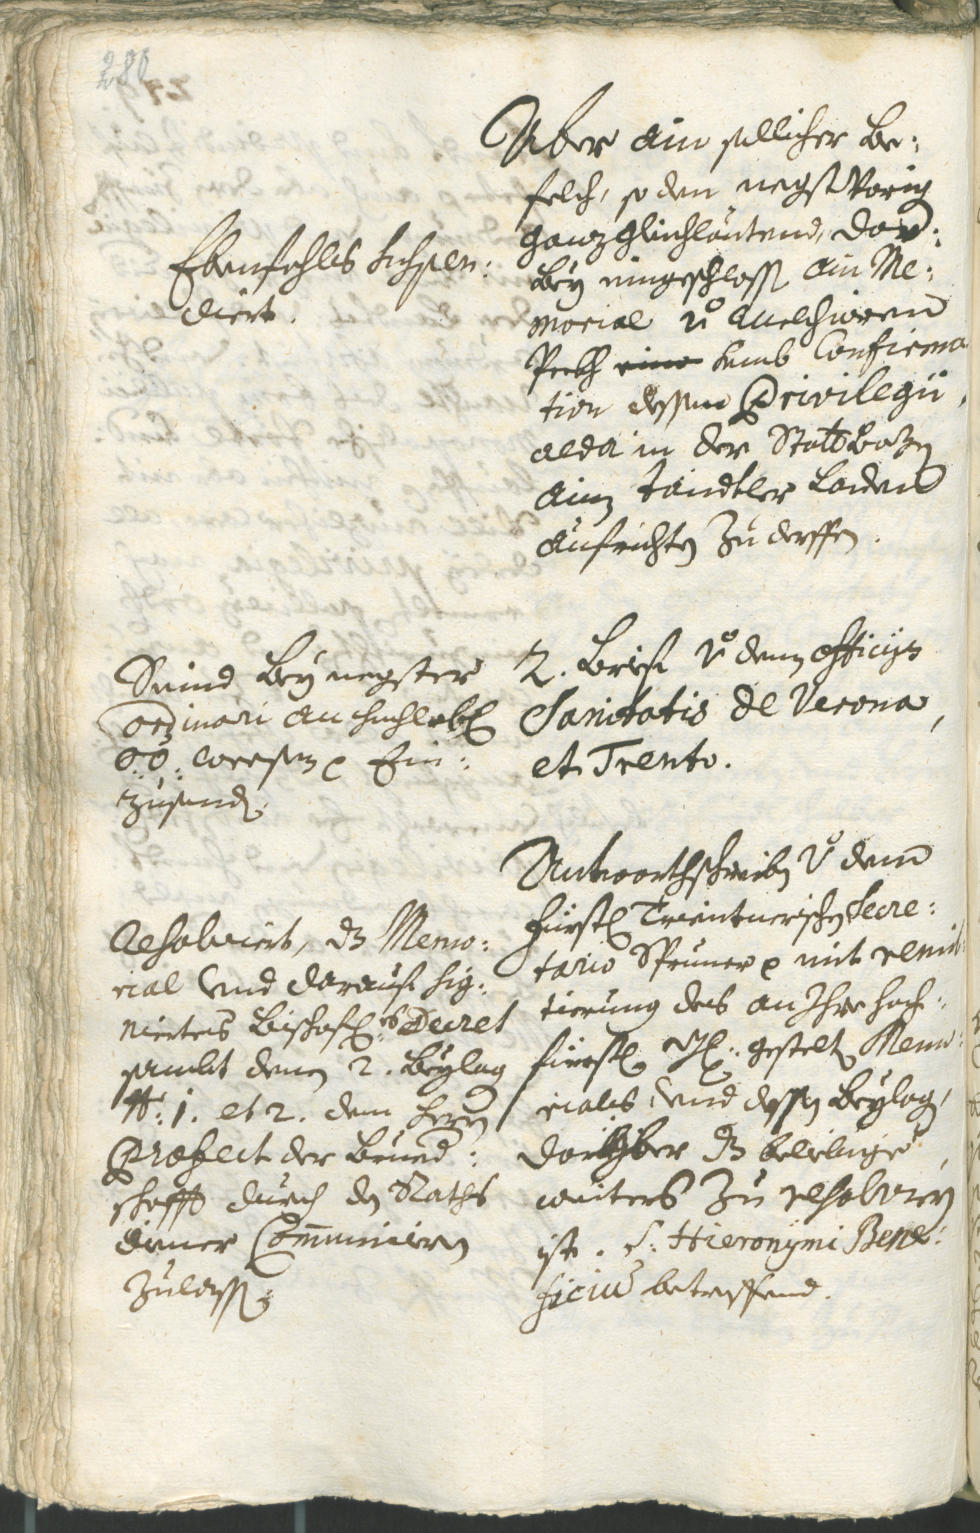 280
Über ain solicher Be:
felch, so den negst Vorig
ganz gleichlautend, dar:
bey eingeschloss ain Me:
morial v° Melchioren
Pech umb Confirma
tion dessen Privilegii,
alda in der Statt Bozen
ainen tandtler Laden
aufrichten zu derffen.
Ebenfahls suspen:
diert.
2. Brief v° denen officijs
Sanitatis de Verona,
et Trento.
Seind bey negster
ordinari an hochlobl
o:ö: weesen Ein:
zusenden.
Antworthschreiben v° dem
fürstl Trientnerischen Secre:
tario Spruner mit remit
tierung des an Ihro hoch:
fürstl gestelten Memo:
rials, und dessen Beylag,
darüber dz beliebige
weiters zu resolvieren
ist. S: Hieronymi Bene:
ficiu betreffend.
Resolviert, dz Memo:
rial und darauf sig:
niertes Bischofl. Decret
sambt denen 2. Beylag
N: 1. et 2. dem herrn
Præfect der Brued:
schafft durch den Raths
diener Communicieren
zulassen.